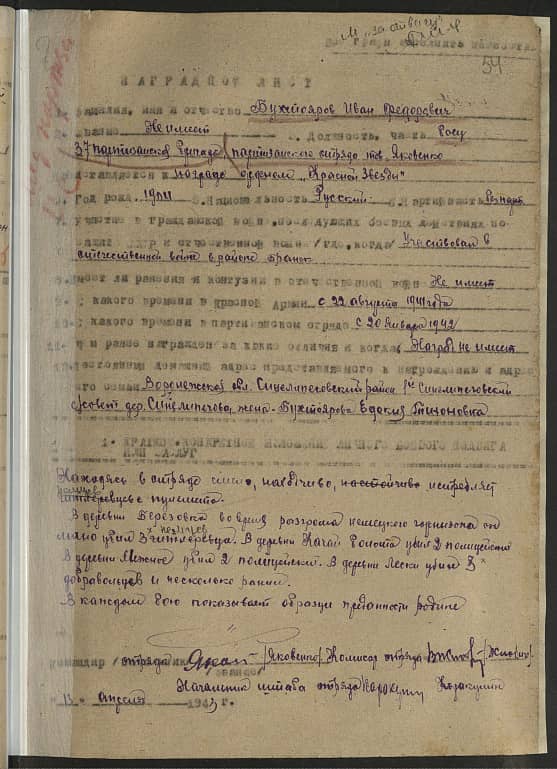 М. "за отвагу"
54
НАГРАДНОЙ ЛИСТ
Фамилия, имя и отчество Бухтояров Иван Федорович
звание Не имеет Должность, часть
37 партизанской бригады партизанского отряда тов. Яковенко
представляется к награде орденом "Красной Звезды"
Год рожд. Национальность Русский Партийность
участие в гражданской войне, последующих боевых действиях по
защите СССР и отечественной войне /где, когда/ Участвовал в
отечественной войне в районе
имеет ли ранения и контузии в отечественной войне Не имеет
с какого времени в Красной Армии с 22 августа 1941 года
с какого времени в партизанском отряде с 20 января 1942
чем ранее награжден за какие отличия и когда Наград не имеет
постоянный домашний адрес представляемого к награждению и адрес
его семьи Воронежская обл. Синелипеговский район 1й Синелипеговский
с/совет дер. Синелипегова, жена - Бухтоярова Евдокия Тихоновна
1. КРАТКОЕ КОНКРЕТНОЕ ИЗЛОЖЕНИЕ ЛИЧНОГО БОЕВОГО ПОДВИГА
ИЛИ ЗАСЛУГ
Находясь в отряде смело, находчиво, настойчиво истребляет
гитлеровцев
В деревни Березовка во время разгрома немецкого гарнизона он
лично убил 3х немцев гитлеровца. В деревни убил 2 полицейских
В деревни убил 2 полицейских. В деревни Лески убил
добровольцев и несколько ранил.
В каждом бою показывает образцы преданности родине
Командир отряда /Яковенко/ Комисар отряда
Начальник штаба отряда
"13" апреля 1943 г.